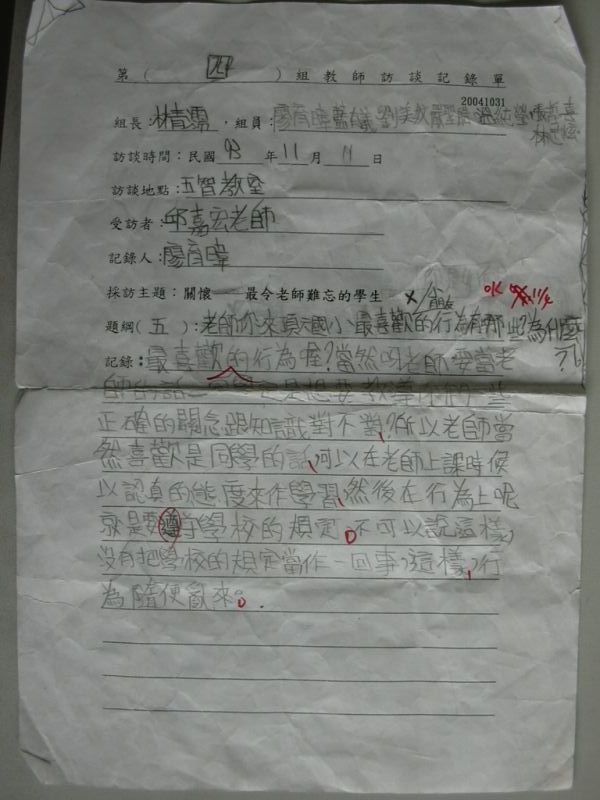 第（ 四 ）組教師訪談記錄單
20041031
組長：林青霈，組員：廖育暐
訪談時間：民國 93 年 11 月 11 日
訪談地點：五智教室
受訪者：邱嘉宏老師
記錄人：廖育暐
採訪主題：關懷——最令老師難忘的學生
OK 11/4
題綱（五）：老師你來頭汴國小最喜歡的行為有那些?為什麼
?
記錄：最喜歡的行為喔?當然呀老師要當老
師的話一定是想要教導你們一些
正確的觀念跟知識對不對?所以老師當
然喜歡是同學的話,可以在老師上課時候
以認真的態度來作學習,然後在行為上呢
就是要遵守學校的規定。不可以說這樣,
沒有把學校的規定當作一回事,這樣,行
為隨便亂來。